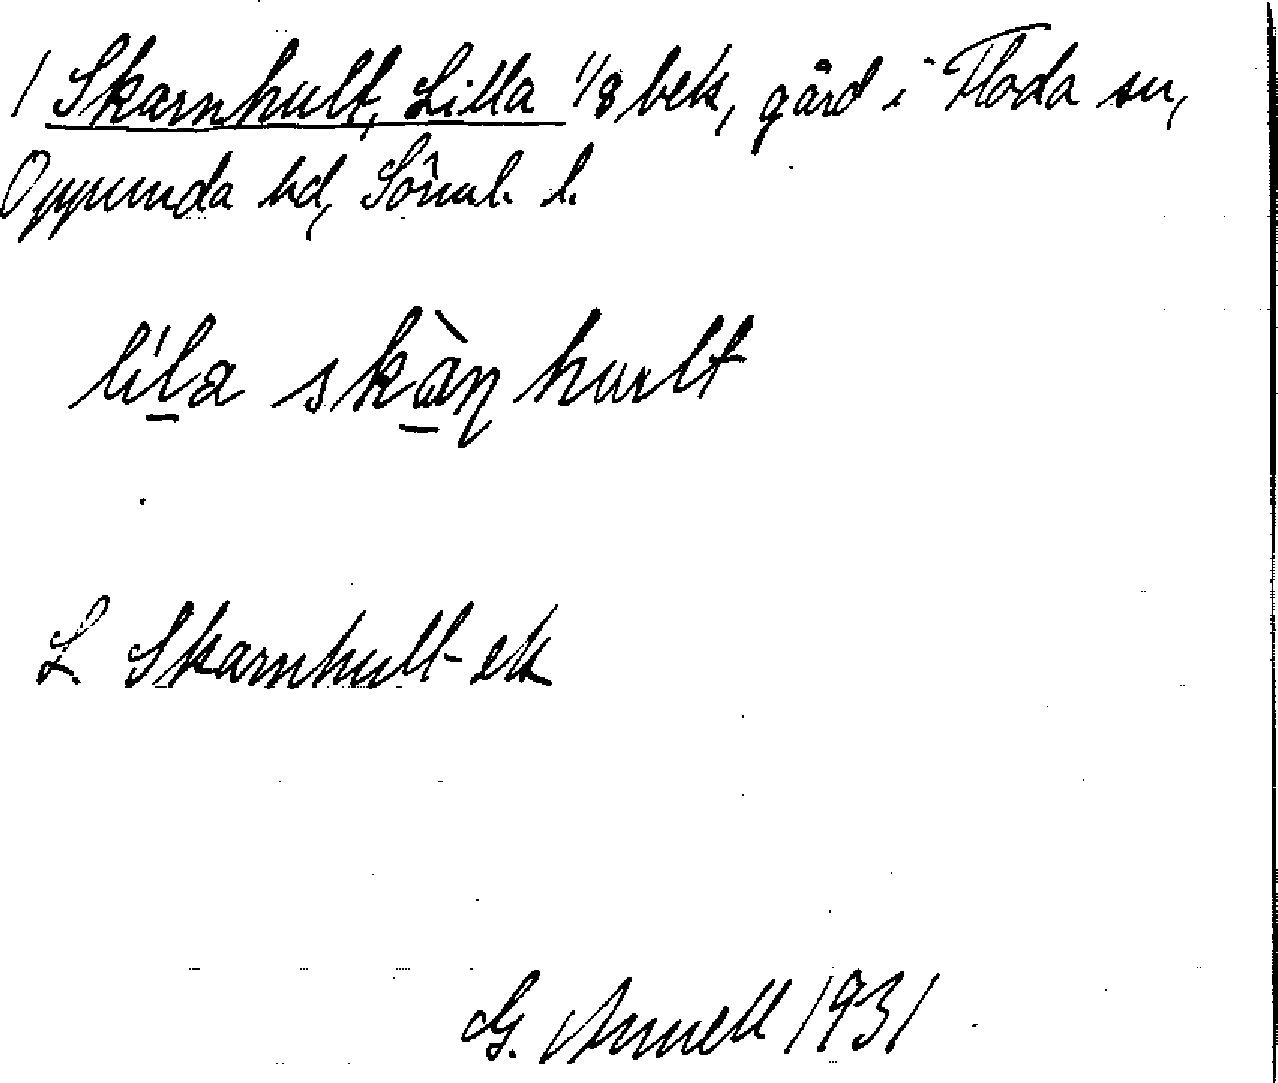 / Skarnhult, Lilla 1/8 bek, gård i Floda sn,
Oppunda hd, Söml. l.
líla skàn̩hult
L Skarnhult-ek
G. Arnell 1931